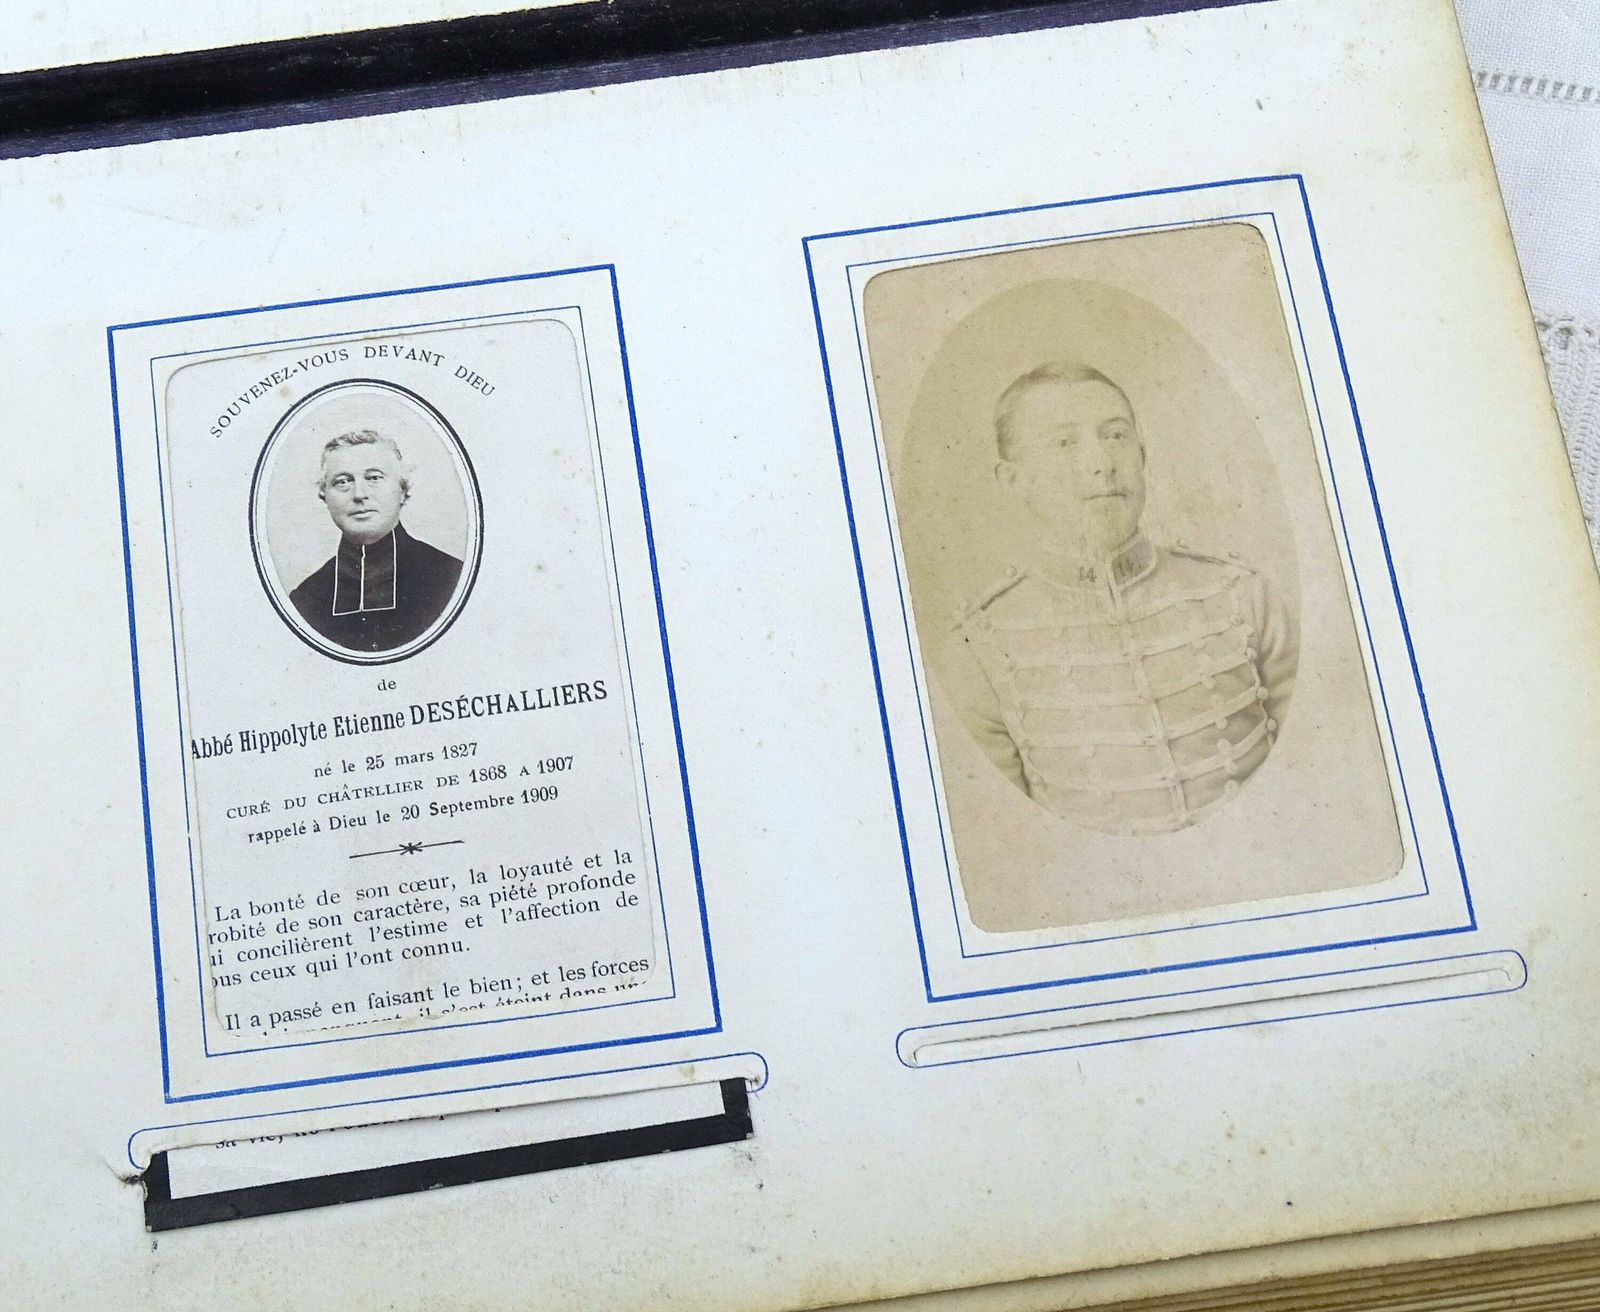 SOUVENEZ-VOUS DEVANT DIEU
de
Abbé Hippolyte Etienne DESÉCHALLIERS
né le 25 mars 1827
CURÉ DU CHÂTELLIER DE 1868 A 1907
rappelé à Dieu le 20 Septembre 1909
La bonté de son cœur, la loyauté et la
robité de son caractère, sa piété profonde
ui concilièrent l'estime et l'affection de
ous ceux qui l'ont connu.
Il a passé en faisant le bien; et les forces
il s'est éteint dans une
sa vie,
14 14